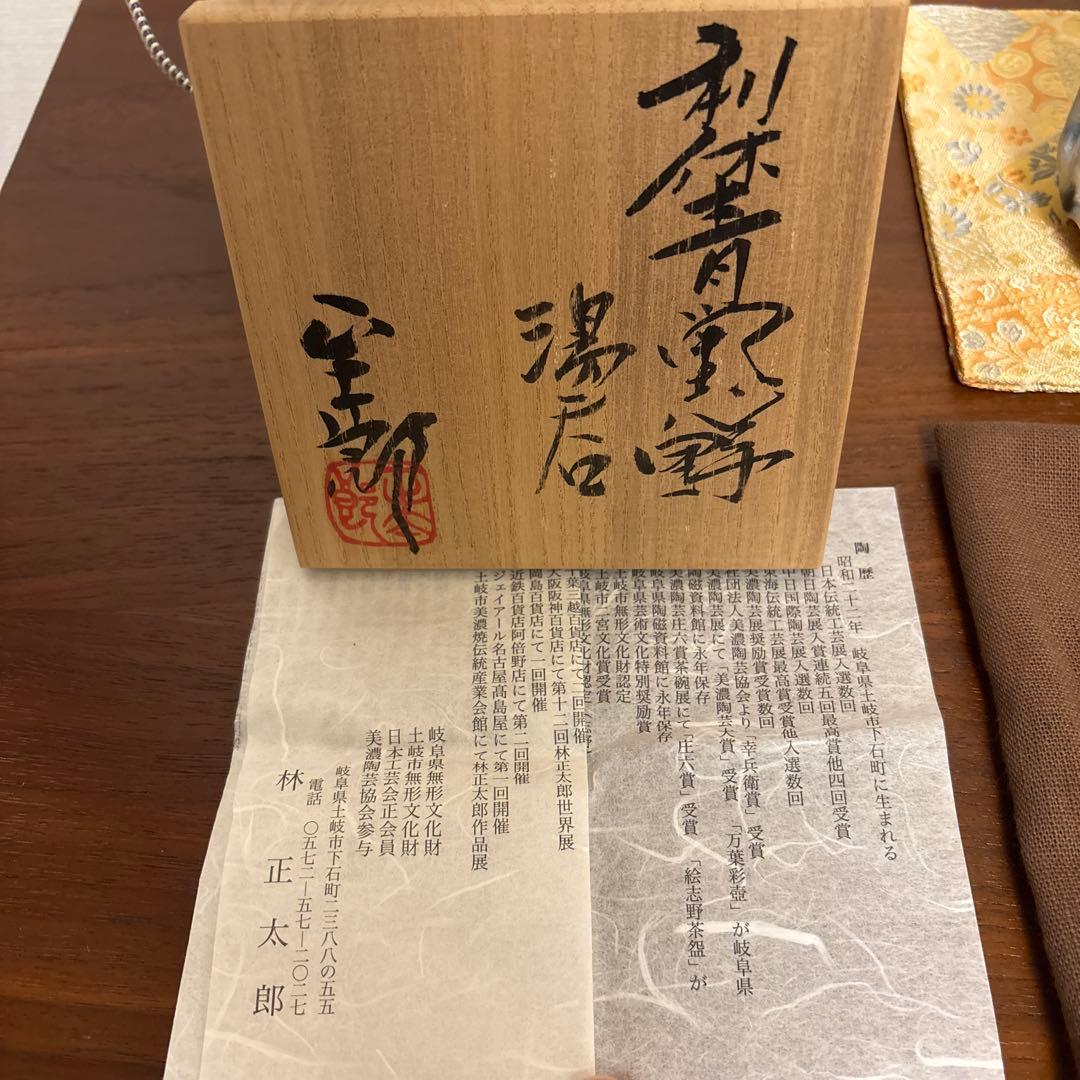 利休青
湯呑
正太郎
陶歴
昭和二十二年 岐阜県土岐市下石町に生まれる
日本伝統工芸展入選数回
朝日陶芸展入賞連続五回最高賞他四回受賞
中日国際陶芸展入選数回
東海伝統工芸展最高賞受賞他入選数回
美濃陶芸展奨励賞受賞数回
社団法人美濃陶芸協会より「幸兵衛賞」受賞
美濃陶芸展にて「美濃陶芸大賞」受賞 「万葉彩壺」が岐阜県
陶磁資料館に永年保存
美濃陶芸庄六賞茶碗展にて「庄六賞」受賞 「絵志野茶盌」が
岐阜県陶磁資料館に永年保存
岐阜県芸術文化特別奨励賞
土岐市無形文化財認定
土岐市二宮文化賞受賞
岐阜県無形文化財認定
千葉三越百貨店にて二回開催
大阪阪神百貨店にて第十二回林正太郎世界展
岡島百貨店にて一回開催
近鉄百貨店阿倍野店にて第二回開催
ジェイアール名古屋髙島屋にて第一回開催
土岐市美濃焼伝統産業会館にて林正太郎作品展
岐阜県無形文化財
土岐市無形文化財
日本工芸会正会員
美濃陶芸協会参与
岐阜県土岐市下石町二三八八の五五
電話 〇五七二―五七―二〇二七
林 正太郎